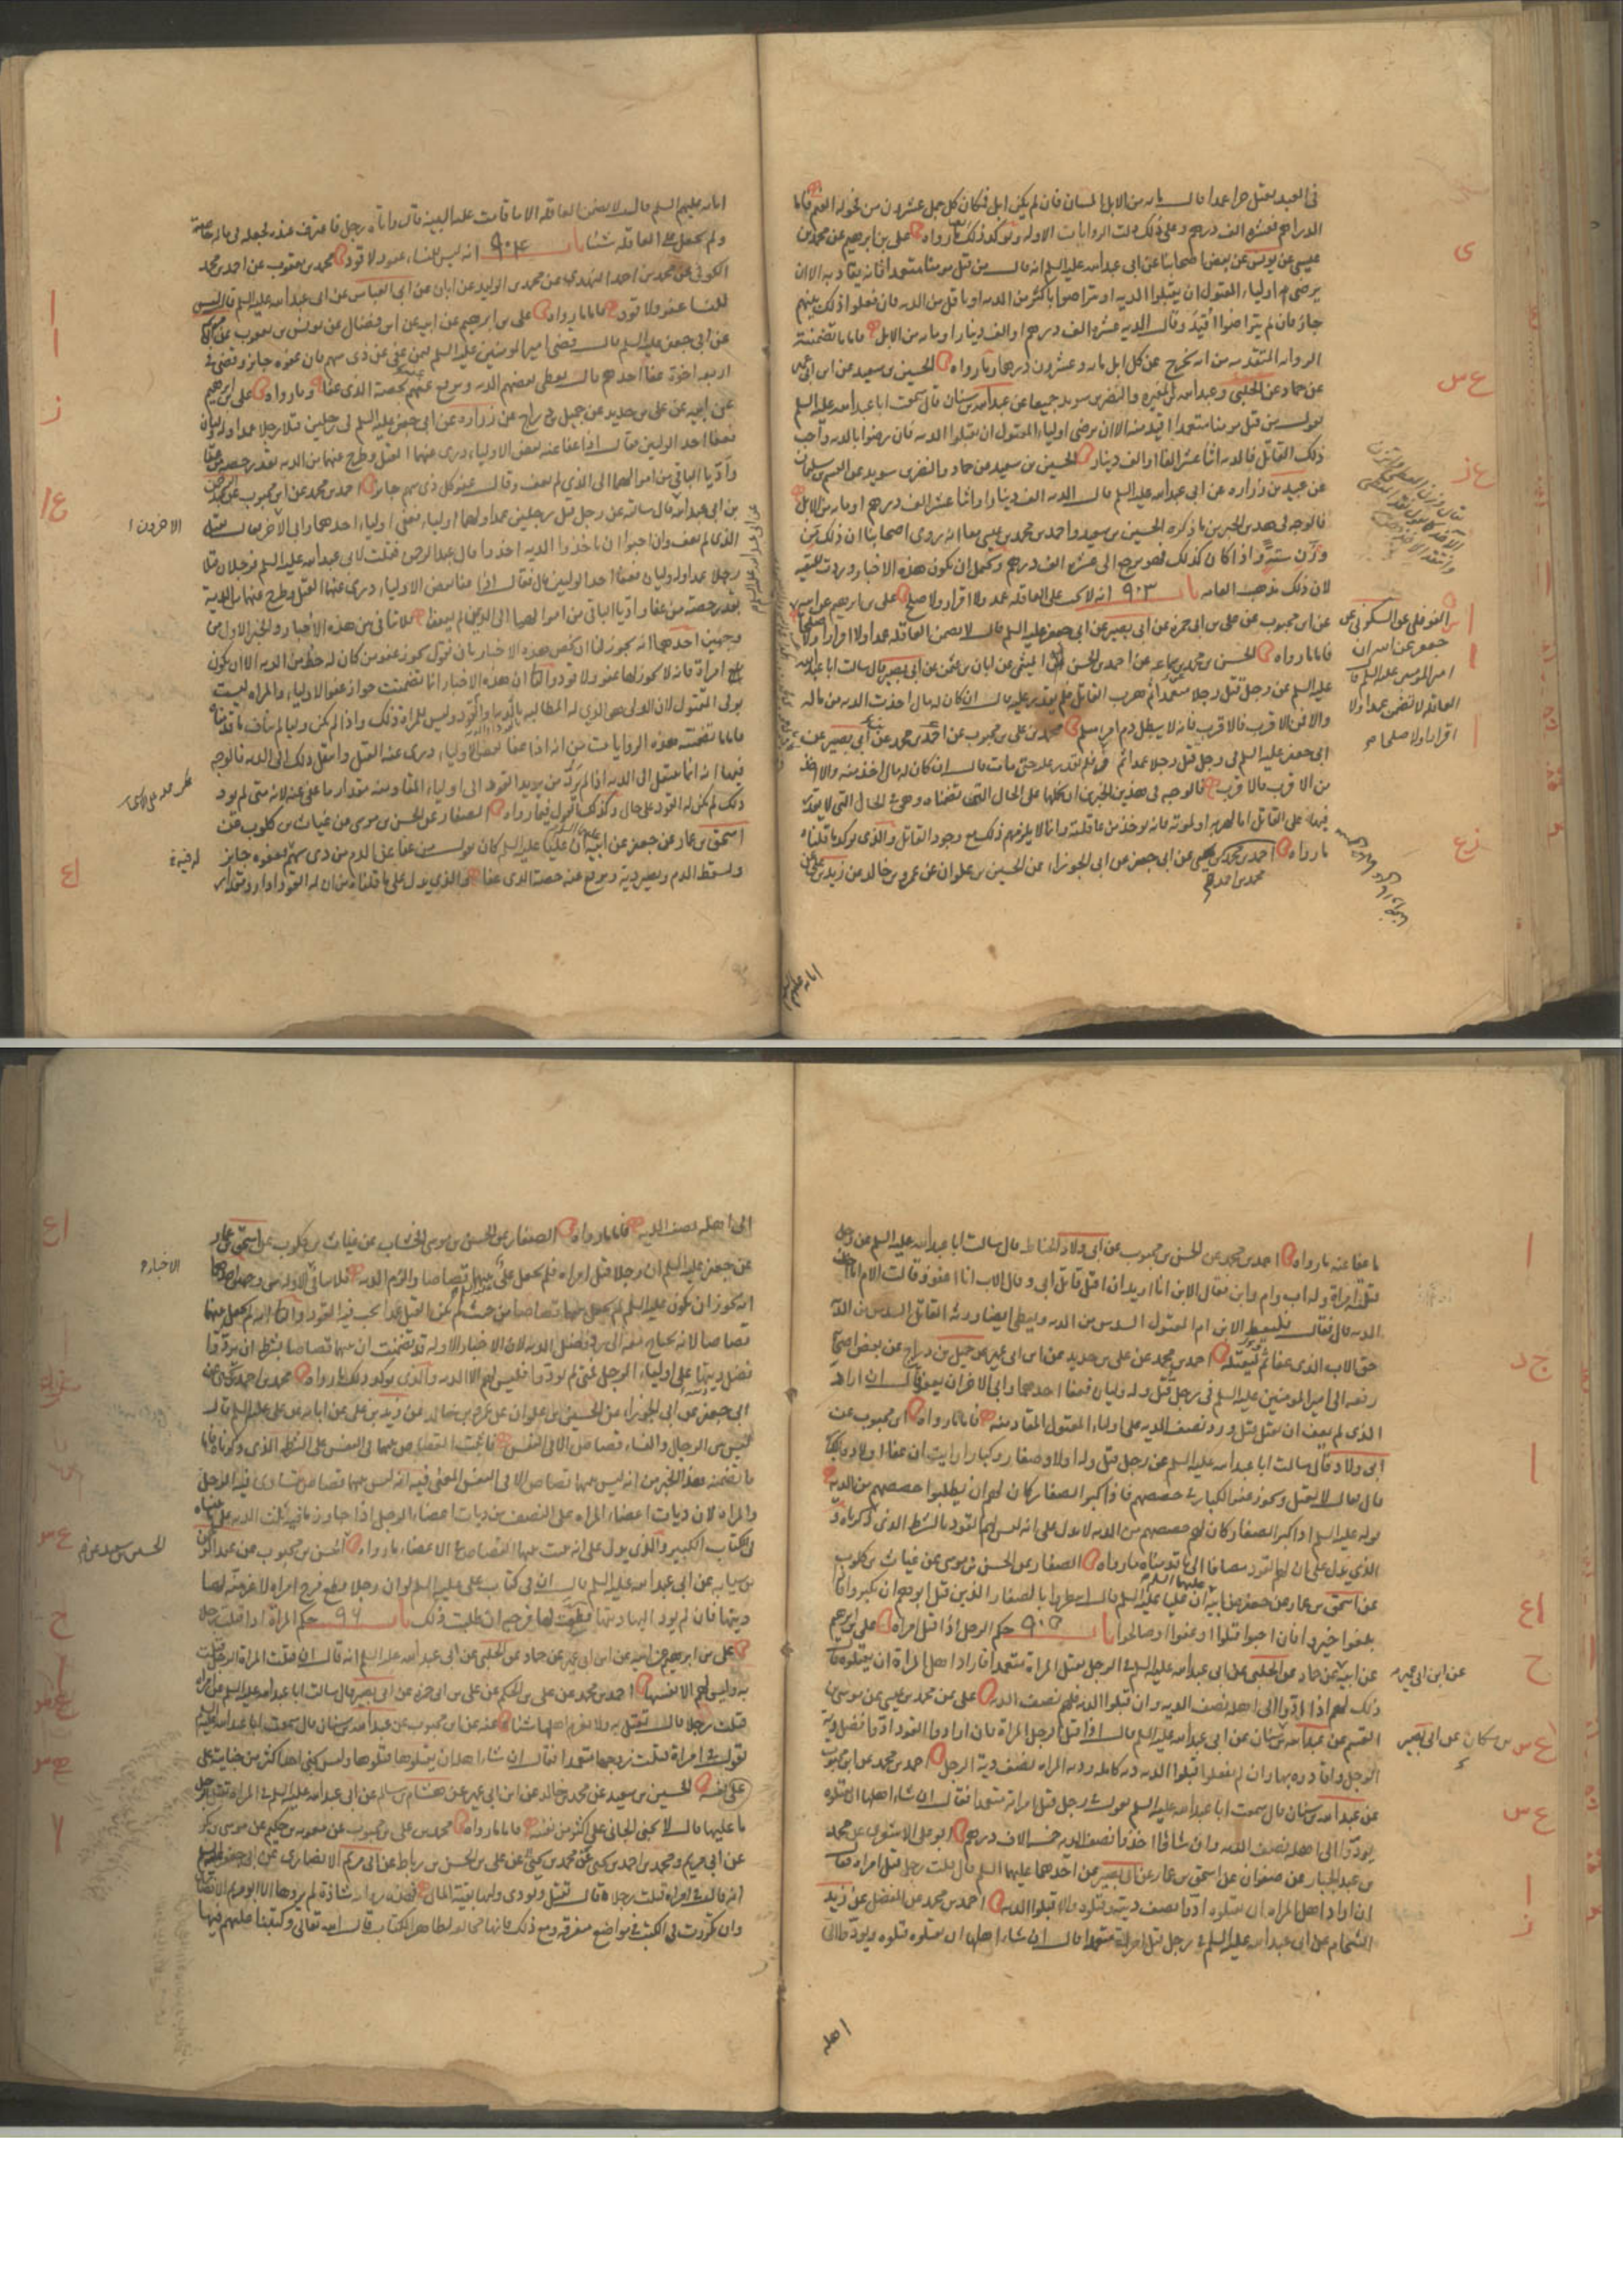 في العبد يقتل حرا عمدا قال مائة من الابل المسان فان لم يكن ابل فكان كل جمل عشرون من فحولة الغنم فاما
الدراهم فعشرة الف درهم وعلى ذلك دلت الروايات الاولة ويؤكد ذلك ما رواه علي بن ابرهيم عن محمد بن
عيسى عن يونس عن بعض اصحابنا عن ابي عبد الله عليه السلم انه قال من قتل مومنا متعمدا فانه يقاد به الا ان
يرضى اولياء المقتول ان يقبلوا الدية او يتراضوا باكثر من الدية او باقل من الدية فان فعلوا ذلك بينهم
جاز فان لم يتراضوا أقيد وقال الدية عشرة الف درهم او الف دينار او مائة من الابل فاما ما تضمنته
الرواية المتقدمة من انه يخرج عن كل ابل مائة وعشرون درهما وما رواه الحسين بن سعيد عن ابن ابي عمير
عن حماد عن الحلبي وعبد الله بن المغيرة والنضر بن سويد جميعا عن عبد الله بن سنان قال سمعت ابا عبد الله عليه السلم
يقول من قتل مومنا متعمدا اقيد منه الا ان يرضى اولياء المقتول ان يقبلوا الدية فان رضوا بالدية واحب
ذلك القاتل فالدية اثنا عشر الفا او الف دينار الحسين بن سعيد عن حماد والنضر بن سويد عن القسم بن سليمان
عن عبيد بن زرارة عن ابي عبد الله عليه السلم قال الدية الف دينار او اثنا عشر الف درهم او مائة من الابل
فالوجه في هذين الخبرين ما ذكره الحسين بن سعيد واحمد بن محمد بن عيسى معا انه روى اصحابنا ان ذلك من
وزن ستة واذا كان كذلك فهو يرجع الى عشرة الف درهم ويحتمل ان يكون هذه الاخبار وردت للتقية
لان ذلك مذهب العامة باب ٩٠٣ انه لا يجب على العاقلة عمد ولا اقرار ولا صلح علي بن ابرهيم عن ابيه
عن ابن محبوب عن علي بن ابي حمزة عن ابي بصير عن ابي جعفر عليه السلم قال لا يضمن العاقلة عمدا ولا اقرارا ولا صلحا
فاما ما رواه الحسن بن محمد بن سماعة عن احمد بن الحسن الميثمي عن ابان بن عثمن عن ابي بصير قال سالت ابا عبد الله
عليه السلم عن رجل قتل رجلا متعمدا ثم هرب القاتل فلم يقدر عليه قال ان كان له مال اخذت الدية من ماله
والا فمن الاقرب فالاقرب فانه لا يبطل دم امرء مسلم محمد بن علي بن محبوب عن احمد بن محمد عن ابي بصير عن
ابي جعفر عليه السلم في رجل قتل رجلا عمدا ثم فر فلم يقدر عليه حتى مات قال ان كان له مال اخذ منه والا اخذ
من الاقرب فالاقرب فالوجه في هذين الخبرين ان نحملها على الحال التي تضمناه وهي الحال التي لا يقدر
فيها على القاتل اما لهربه او لموته فانه يوخذ من عاقلته وانما لا يلزمهم ذلك مع وجود القاتل والذي يؤكد ما قلناه
ما رواه احمد بن محمد بن يحيى عن ابي جعفر عن ابي الجوزاء عن الحسين بن علوان عن عمرو بن خالد عن زيد بن علي عن
محمد بن احمد
النوفلي عن السكوني عن
جعفر عن ابيه ان
امير المومنين عليه السلم قال
العاقلة لا تضمن عمدا ولا
اقرارا ولا صلحا
ابائه عليهم السلم
ابائه عليهم السلم قال لا يضمن العاقلة الا ما قامت عليه البينة قال واتاه رجل فاعترف عنده فجعله في ماله خاصة
ولم يجعل على العاقلة شيئا باب ٩٠٤ انه ليس للنساء عفو ولا قود محمد بن يعقوب عن احمد بن محمد
الكوفي عن محمد بن احمد النهدي عن محمد بن الوليد عن ابان عن ابي العباس عن ابي عبد الله عليه السلم قال ليس
للنساء عفو ولا قود فاما ما رواه علي بن ابرهيم عن ابيه عن ابن فضال عن يونس بن يعقوب عن
عن ابي جعفر عليه السلم قال قضى امير المومنين عليه السلم فيمن عفى عن ذي سهم فان عفوه جايز وقضى في
اربعة اخوة عفا احدهم قال يعطى بعضهم الدية ويرفع عنهم بحصة الذي عفا وما رواه علي بن ابرهيم
عن ابيه عن علي بن حديد عن جميل بن دراج عن زرارة عن ابي جعفر عليه السلم في رجلين قتلا رجلا عمدا وله وليان
فعفا احد الوليين فقال اذا عفا عنه بعض الاولياء درى عنهما القتل وطرح عنهما من الدية بقدر حصة من عفا
وأديا الباقي من اموالهما الى الذي لم يعف وقال عفو كل ذي سهم جايز احمد بن محمد عن ابن محبوب عن عبد الرحمن
بن ابي عبد الله قال سالته عن رجل قتل رجلين عمدا ولهما اولياء فعفى اولياء احدهما وابى الاخر قال يقتل
الذي لم يعف وان احبوا ان ياخذوا الدية اخذوا قال عبد الرحمن فقلت لابي عبد الله عليه السلم فرجلان قتلا
رجلا عمدا وله وليان فعفا احد الوليين قال فقال اذا عفا بعض الاولياء درى عنهما القتل وطرح عنهما من الدية
بقدر حصة من عفا واديا الباقي من اموالهما الى الذي لم يعف فلا تنافي بين هذه الاخبار والخبر الاول من
وجهين احدهما انه يجوز لنا ان نخص هذه الاخبار بان نقول يجوز عفو من كان له حظ من الدية الا ان يكون
امراة فانه لا يجوز لها عفو ولا قود والثاني ان هذه الاخبار انما تضمنت جواز عفو الاولياء والمراة ليست
بولي المقتول لان الولي هو الذي له المطالبة بالقود او الدية وليس للمراة ذلك واذا لم يكن وليا لم يناف ما قدمناه
فاما ما تضمنته هذه الروايات من انه اذا عفا بعض الاولياء درى عنه القتل وانتقل ذلك الى الدية فالوجه
فيها انه انما ينتقل الى الدية اذا لم يرد من يريد القود الى اولياء المقاد منه مقدار ما عفى عنه لانه متى لم يرد
ذلك لم يكن له القود على حال وكذلك نقول فيما رواه الصفار عن الحسن بن موسى عن غياث بن كلوب عن
اسحق بن عمار عن جعفر عن ابيه ان عليا عليه السلم كان يقول من عفا عن الدم من ذي سهم فعفوه جايز
ويسقط الدم ويصير دية ويرفع عنه حصة الذي عفا والذي يدل على ما قلناه من ان له القود اذا رد مقدار
الاخرون
ما عفا عنه ما رواه احمد بن محمد عن الحسن بن محبوب عن ابي ولاد الحناط قال سالت ابا عبد الله عليه السلم عن رجل
قتلته امراة وله اب وام وابن فقال الابن انا اريد ان اقتل قاتل ابي وقال الاب انا اعفو وقالت الام انا اخذ
الدية قال فقال فليعط الابن ام المقتول السدس من الدية ويعطى ايضا ورثة القاتل السدس من الدية
حق الاب الذي عفا ثم ليقتله احمد بن محمد عن علي بن حديد عن ابن ابي عمير عن جميل بن دراج عن بعض اصحابنا
رفعه الى امير المومنين عليه السلم في رجل قتل وله وليان فعفا احدهما وابى الاخر ان يعفو قال ان اراد
الذي لم يعف ان يقتل قتل ورد نصف الدية على اولياء المقتول المقاد منه فاما ما رواه ابن محبوب عن
ابي ولاد قال سالت ابا عبد الله عليه السلم عن رجل قتل وله اولاد صغار وكبار ارايت ان عفا اولاده الكبار
قال فقال لا يقتل ويجوز عفو الكبار في حصصهم فاذا كبر الصغار كان لهم ان يطلبوا حصصهم من الدية
قوله عليه السلم اذا كبر الصغار كان لهم حصصهم من الدية لا يدل على انه ليس لهم القود بالشرط الذي ذكرناه و
الذي يدل على ان لهم القود مضافا الى ما قدمناه ما رواه الصفار عن الحسن بن موسى عن غياث بن كلوب
عن اسحق بن عمار عن جعفر عن ابيه ان عليا عليه السلم قال انتظروا بالصغار الذين قتل ابوهم ان يكبروا فاذا
بلغوا خيروا فان احبوا قتلوا او عفوا او صالحوا باب ٩٠٥ حكم الرجل اذا قتل امراة علي بن ابرهيم
عن ابيه عن حماد عن الحلبي عن ابي عبد الله عليه السلم في الرجل يقتل المراة متعمدا فاراد اهل المراة ان يقتلوه قال
ذلك لهم اذا ادوا الى اهله نصف الدية وان قبلوا الدية فلهم نصف الدية علي عن محمد بن عيسى عن يونس عن
القسم عن عبد الله بن سنان عن ابي عبد الله عليه السلم قال اذا قتل الرجل المراة فان ارادوا القود ادوا فضل دية
الرجل واقادوه بها وان لم يفعلوا قبلوا الدية دية كاملة ودية المراة نصف دية الرجل احمد بن محمد عن ابن محبوب
عن عبد الله بن سنان قال سمعت ابا عبد الله عليه السلم يقول في رجل قتل امراته متعمدا فقال ان شاء اهلها ان يقتلوه
يودوا الى اهله نصف الدية وان شاؤا اخذوا نصف الدية خمسة الاف درهم ابو علي الاشعري عن محمد
بن عبد الجبار عن صفوان عن اسحق بن عمار عن ابي بصير عن احدهما عليهما السلم قال قلت رجل قتل امراة فقال
ان اراد اهل المراة ان يقتلوه ادوا نصف ديته وقتلوه والا قبلوا الدية احمد بن محمد عن المفضل عن زيد
الشحام عن ابي عبد الله عليه السلم في رجل قتل امراة متعمدا قال ان شاء اهلها ان يقتلوه قتلوه ويودوا الى
عن ابن ابي عمير
بن مسكان عن ابي بصير
اهله
الى اهله نصف الدية فاما ما رواه الصفار عن الحسن بن موسى الخشاب عن غياث بن كلوب عن اسحق بن عمار
عن جعفر عليه السلم ان رجلا قتل امراة فلم يجعل علي عليه السلم بينهما قصاصا والزمه الدية فلا ينافي الاولة من وجهين احدهما
انه يجوز ان يكون عليه السلم لم يجعل بينهما قصاصا من حيث لم يكن القتل عمدا يجب فيه القود والثاني انه لم يجعل بينهما
قصاصا لانه يحتاج معه الى رد فضل الدية لان الاخبار الاولة قد تضمنت ان بينهما قصاصا بشرط ان يردوا
فضل ديتها على اولياء الرجل فمتى لم يردوا فليس لهم الا الدية والذي يؤكد ذلك ما رواه محمد بن احمد بن يحيى عن
ابي جعفر عن ابي الجوزاء عن الحسين بن علوان عن عمرو بن خالد عن زيد بن علي عن ابائه عن علي عليه السلم قال
ليس بين الرجال والنساء قصاص الا في النفس فاثبت القصاص بينهما في النفس على الشرط الذي ذكرناه فاما
ما تضمنه هذا الخبر من انه ليس بينهما قصاص الا في النفس المعنى فيه انه ليس بينهما قصاص يتساوى فيه الرجل
والمراة لان ديات اعضاء المراة على النصف من ديات اعضاء الرجل اذا جاوز ما فيه ثلث الدية على ما بيناه
في كتاب الكبير والذي يدل على انه يثبت بينهما القصاص في الاعضاء ما رواه الحسن بن محبوب عن عبد الرحمن
بن سيابة عن ابي عبد الله عليه السلم قال ان في كتاب علي عليه السلم لو ان رجلا قطع فرج امراة لاغرمته لها
ديتها فان لم يود اليها ديتها قطعت لها فرجه ان طلبت ذلك باب ٩٠٦ حكم المراة اذا قتلت رجلا
علي بن ابرهيم عن ابيه عن ابن ابي عمير عن حماد عن الحلبي عن ابي عبد الله عليه السلم انه قال ان قتلت المراة الرجل قتلت
به وليس لهم الا نفسها احمد بن محمد عن علي بن الحكم عن علي بن ابي حمزة عن ابي بصير قال سالت ابا عبد الله عليه السلم عن امراة
قتلت رجلا قال تقتل به ولا يغرم اهلها شيئا عنه عن ابن محبوب عن عبد الله بن سنان قال سمعت ابا عبد الله عليه السلم
يقول في امراة قتلت زوجها متعمدا فقال ان شاء اهله ان يقتلوها قتلوها وليس يجني احد اكثر من جنايته على
نفسه الحسين بن سعيد عن محمد بن خالد عن ابن ابي عمير عن هشام بن سالم عن ابي عبد الله عليه السلم في المراة تقتل الرجل
ما عليها قال لا يجني الجاني على اكثر من نفسه فاما ما رواه محمد بن علي بن محبوب عن معوية بن حكيم عن موسى بن بكر
عن ابي مريم ومحمد بن احمد بن يحيى عن محمد بن يحيى عن علي بن الحسن بن رباط عن ابي مريم الانصاري عن ابي جعفر عليه السلم
انه قال في امراة قتلت رجلا قال تقتل ويودى وليها بقية المال فهذه رواية شاذة لم يروها الا ابو مريم الانصاري
وان تكررت في الكتب في مواضع متفرقة ومع ذلك فانها مخالفة لظاهر الكتاب قال الله تعالى وكتبنا عليهم فيها
الاخبار
الحسين بن سعيد عن